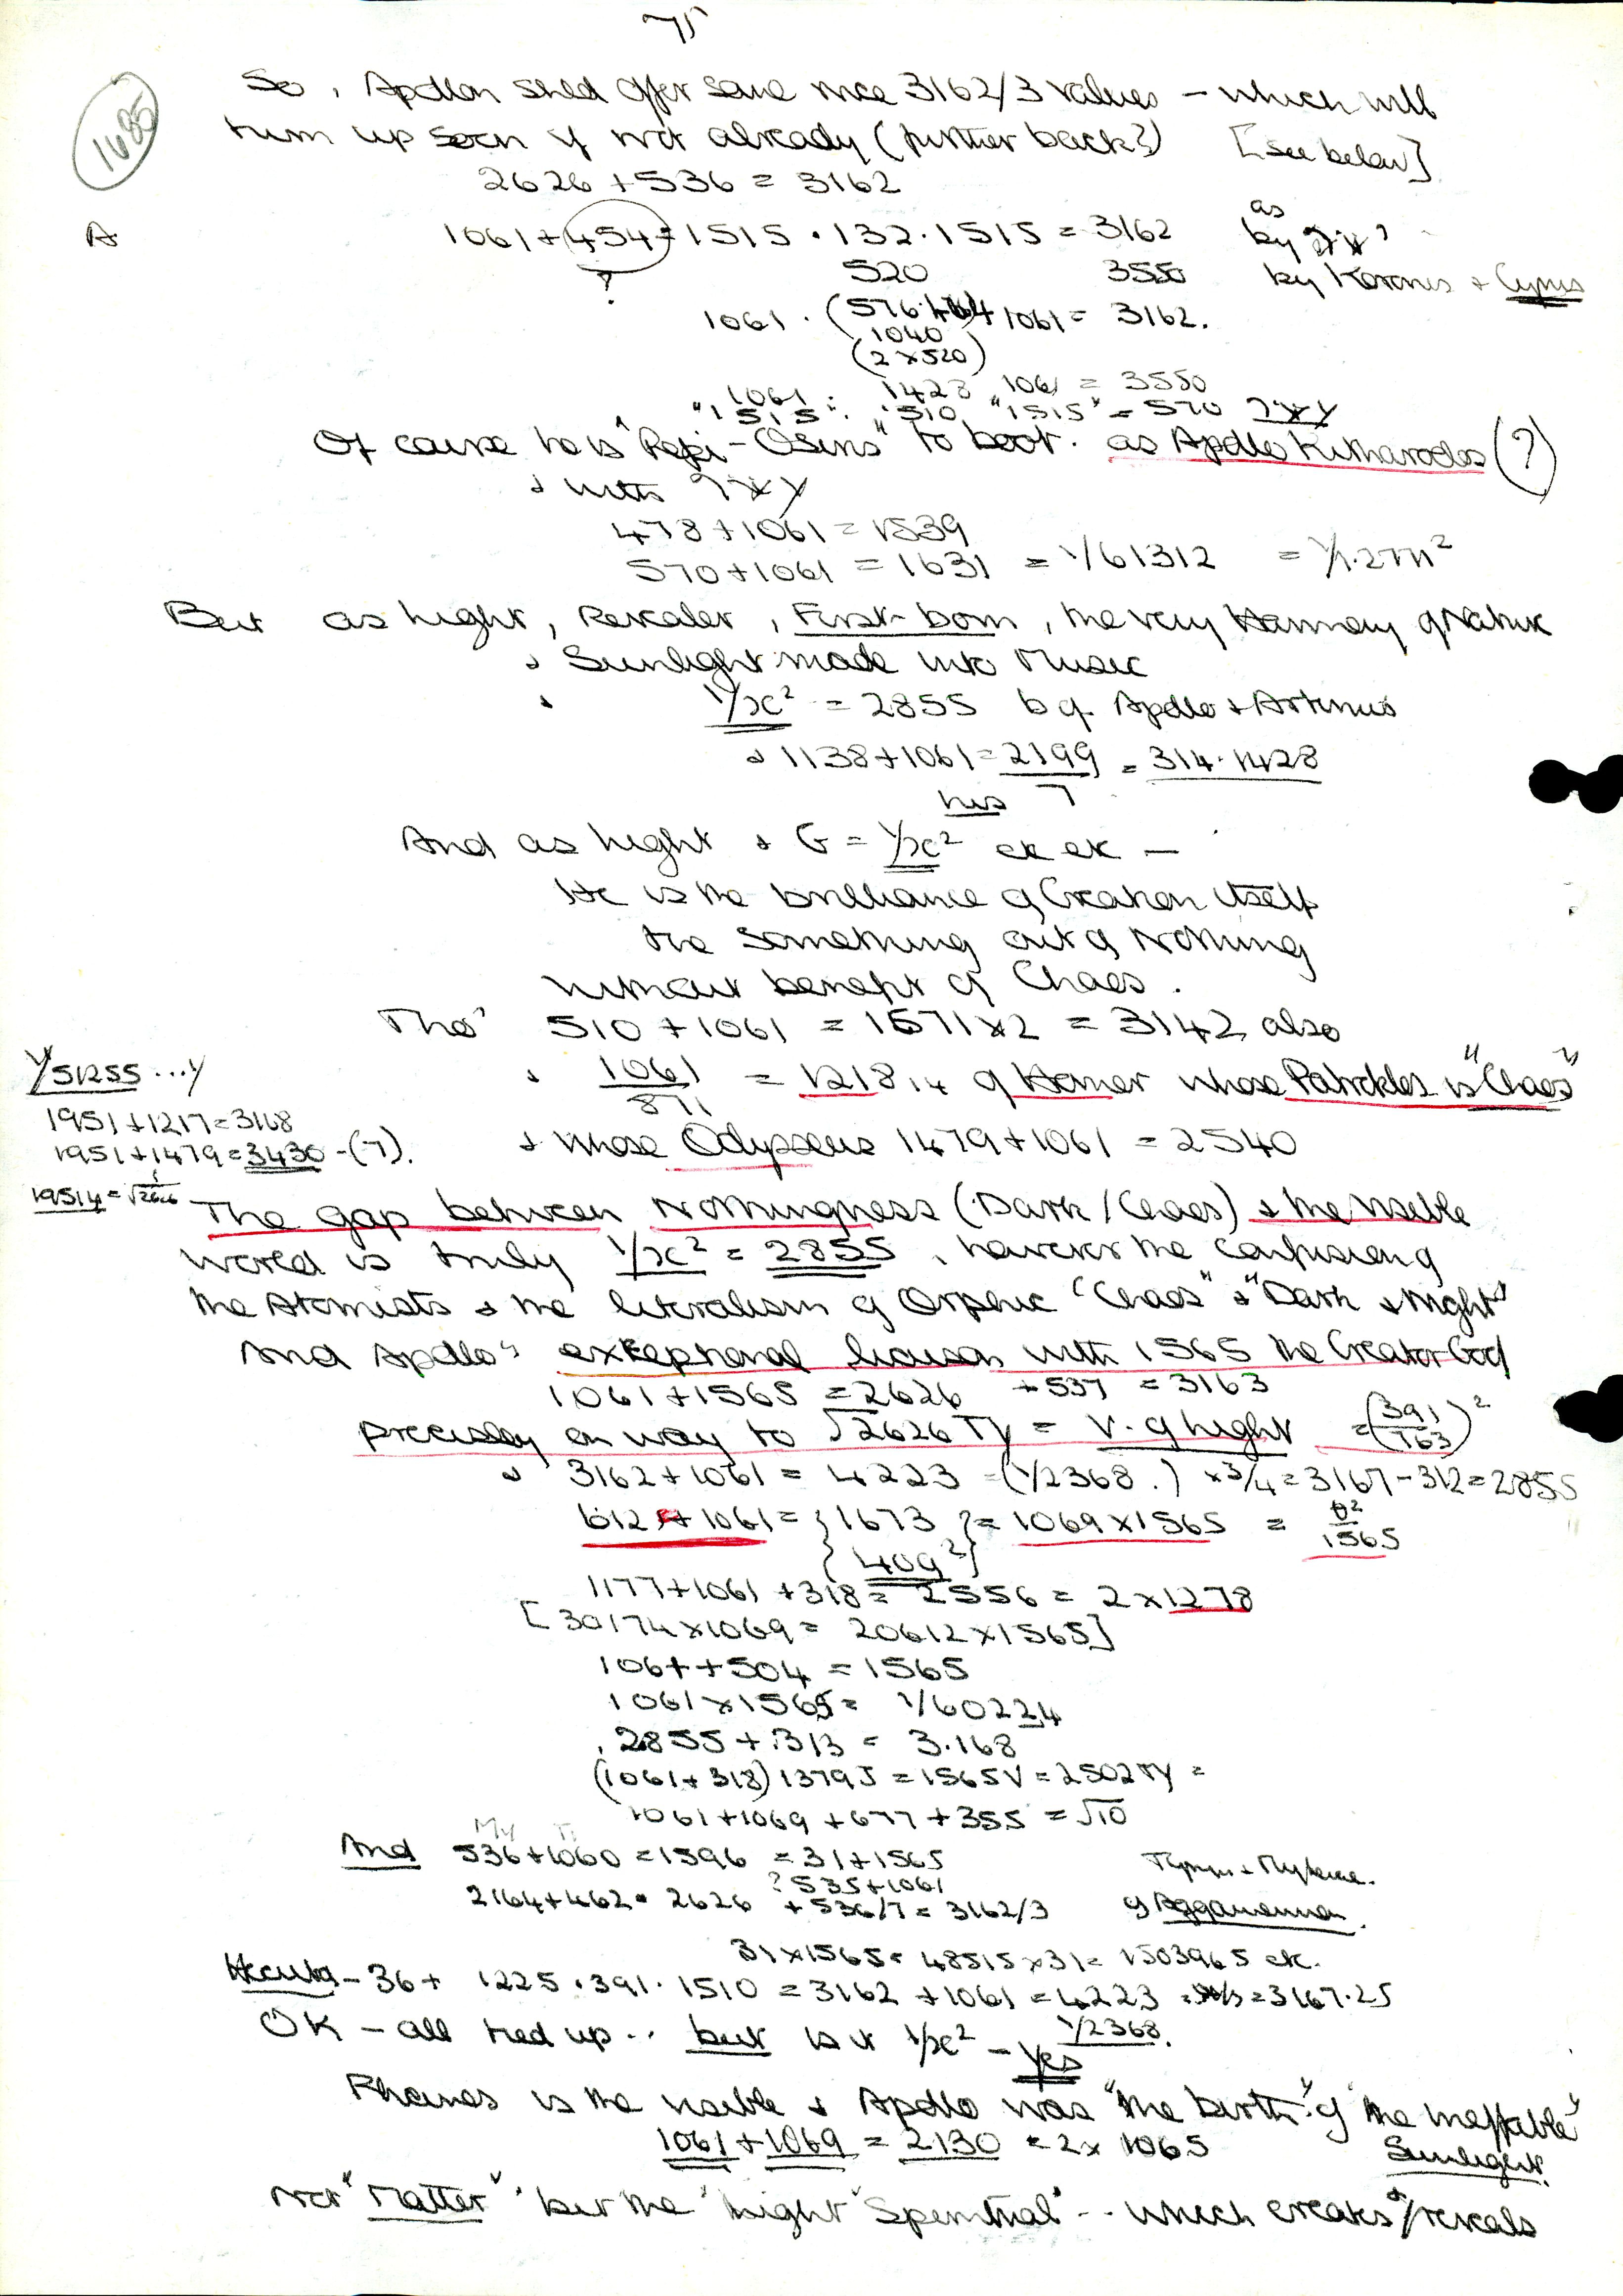 75
1685
So, Apollon shld offer some nice 3162/3 values – which will
turn up soon if not already (further back?) [see below]
2626 + 536 = 3162
A
1061 + 454 = 1515 . 132 . 1515 = 3162 as by
?
520 3550 by Koronis + Cycnus
1061 . (576.464) + 1061 = 3162.
1040
(2 x 520)
1061 . 1428 1061 = 3550
"1515" . 510 "1515" = 570
Of course he is "Pepi-Osiris" to boot. as Apollo Kitharodos (?)
& with
478 + 1061 = 1539
570 + 1061 = 1631 = 1/61312
But as Light, Revealer, First-born, the very Harmony of Nature
& Sunlight made into Music
& 1/x² = 2855 bq. Apollo & Artemis
& 1138 + 1061 = 2199 = 314.1428
his 7
And as Light & G = 1/x² etc etc –
He is the brilliance of Creation itself
the something out of Nothing
without benefit of Chaos.
Tho' 510 + 1061 = 1571 x 2 = 3142 also
& 1061/871 = 1218.14 of Homer whose Patrokles is "Chaos"
& whose Odysseus 1479 + 1061 = 2540
1/51255 ...y
1951 + 1217 = 3168
1951 + 1479 = 3430 – (7).
The gap between Nothingness (Dark/Chaos) & the Visible
World is truly 1/x² = 2855, however the confusion of
the Atomists & the literalism of Orphic "Chaos" & "Dark & Night"
And Apollo's exceptional liaison with 1565 the Creator God
1061 + 1565 = 2626 + 537 = 3163
precisely on way to √2626 Ty = V. of Light = (391/163)²
& 3162 + 1061 = 4223 = (1/2368.) x 3/4 = 3167 – 312 = 2855
612 + 1061 = {1673} = 1069 x 1565 = θ²/1565
{409²}
1177 + 1061 + 318 = 2556 = 2 x 1278
[30174 x 1069 = 20612 x 1565]
1061 + 504 = 1565
1061 x 1565 = 1/60224
.2855 + .313 = 3.168
(1061 + 318) 1379J = 1565V = 2502Ty =
1061 + 1069 + 677 + 355 = √10
My Ti
And 536 + 1060 = 1596 = 31 + 1565
? 535 + 1061
2164 + 462 = 2626 + 536/7 = 3162/3 of Aggamemnon.
31 x 1565 = 48515 x 31 = 1503965 etc.
– 36 + 1225 . 391 . 1510 = 3162 + 1061 = 4223 = 3167.25
1/2368.
OK – all tied up .. but is it 1/x² – Yes
Phanes is the visible & Apollo was "the birth" of "the ineffable"
Sunlight.
1061 + 1069 = 2130 = 2 x 1065
Not "Matter" but the "Light Spermtal" .. which creates &/reveals